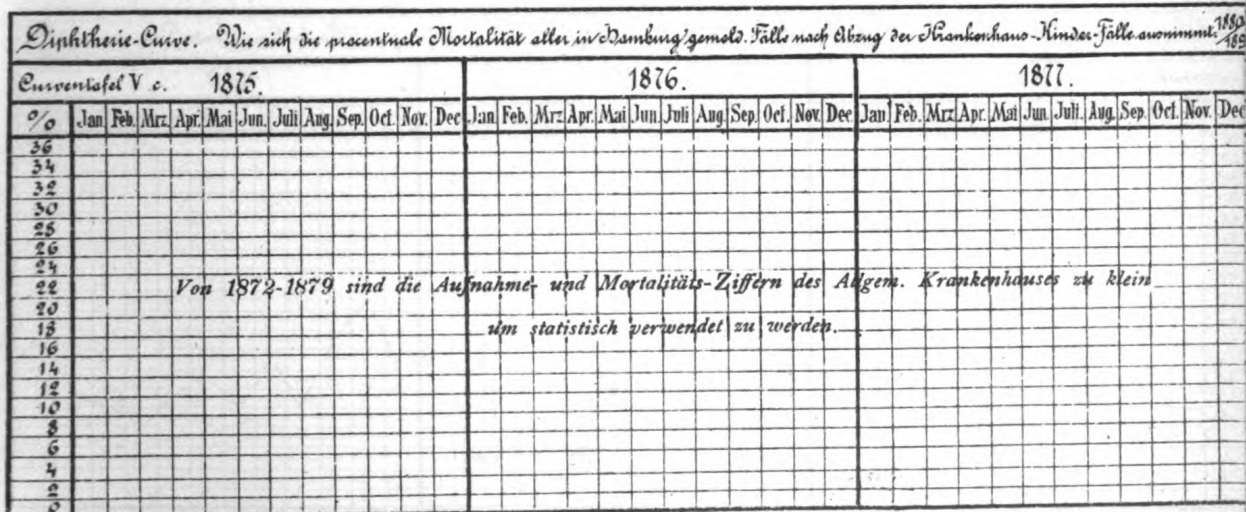 Diphtherie-Curve. Wie sich die procentuale Mortalität aller in Hamburg gemeld. Fälle nach Abzug der Krankenhaus-Kinder-Fälle ausnimmt.
Curventafel V c. 1875. 1876. 1877.
% Jan. Feb. Mrz. Apr. Mai Jun. Juli Aug. Sep. Oct. Nov. Dec Jan. Feb. Mrz Apr. Mai Jun. Juli Aug. Sep. Oct. Nov. Dec Jan. Feb. Mrz Apr. Mai Jun. Juli. Aug. Sep. Oct. Nov. Dec
36
34
32
30
28
26
24
22 Von 1872-1879 sind die Aufnahme- und Mortalitäts-Ziffern des Allgem. Krankenhauses zu klein
20
18 um statistisch verwendet zu werden.
16
14
12
10
8
6
4
2
0